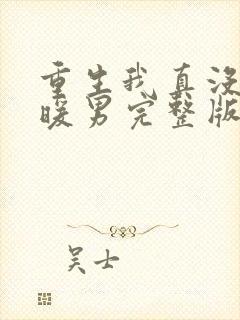 重生我真没
暖男完整版
吴士